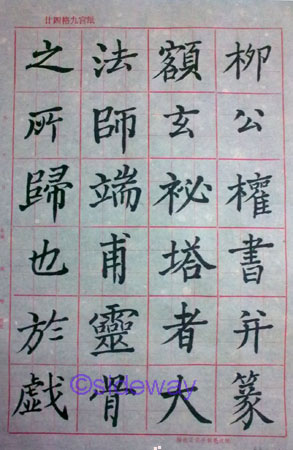 廿四格九宮紙
柳公權書并篆
額玄祕塔者大
法師端甫靈骨
之所歸也於戱
©sideway